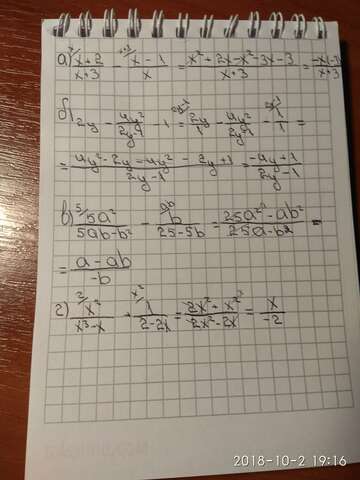 а) x/ x+2/x+3 - x+3/ x-1/x = x²+2x-x²-3x-3/x+3 = -x-3/x+3
б) 2y - 4y²/2y-1 - 1 = 2y-1/ 2y/1 - 4y²/2y-1 - 2y-1/ 1/1 =
= 4y²-2y-4y²-2y+1/2y-1 = -4y+1/2y-1
в) 5/ 5a²/5ab-b² - ab/ b/25-5b = 25a²-ab²/25a-b² =
= a-ab/-b
г) 2/ x²/x³-x + x²/ 1/2-2x = 2x²+x²/2x²-2x = x/-2
2018-10-2 19:16